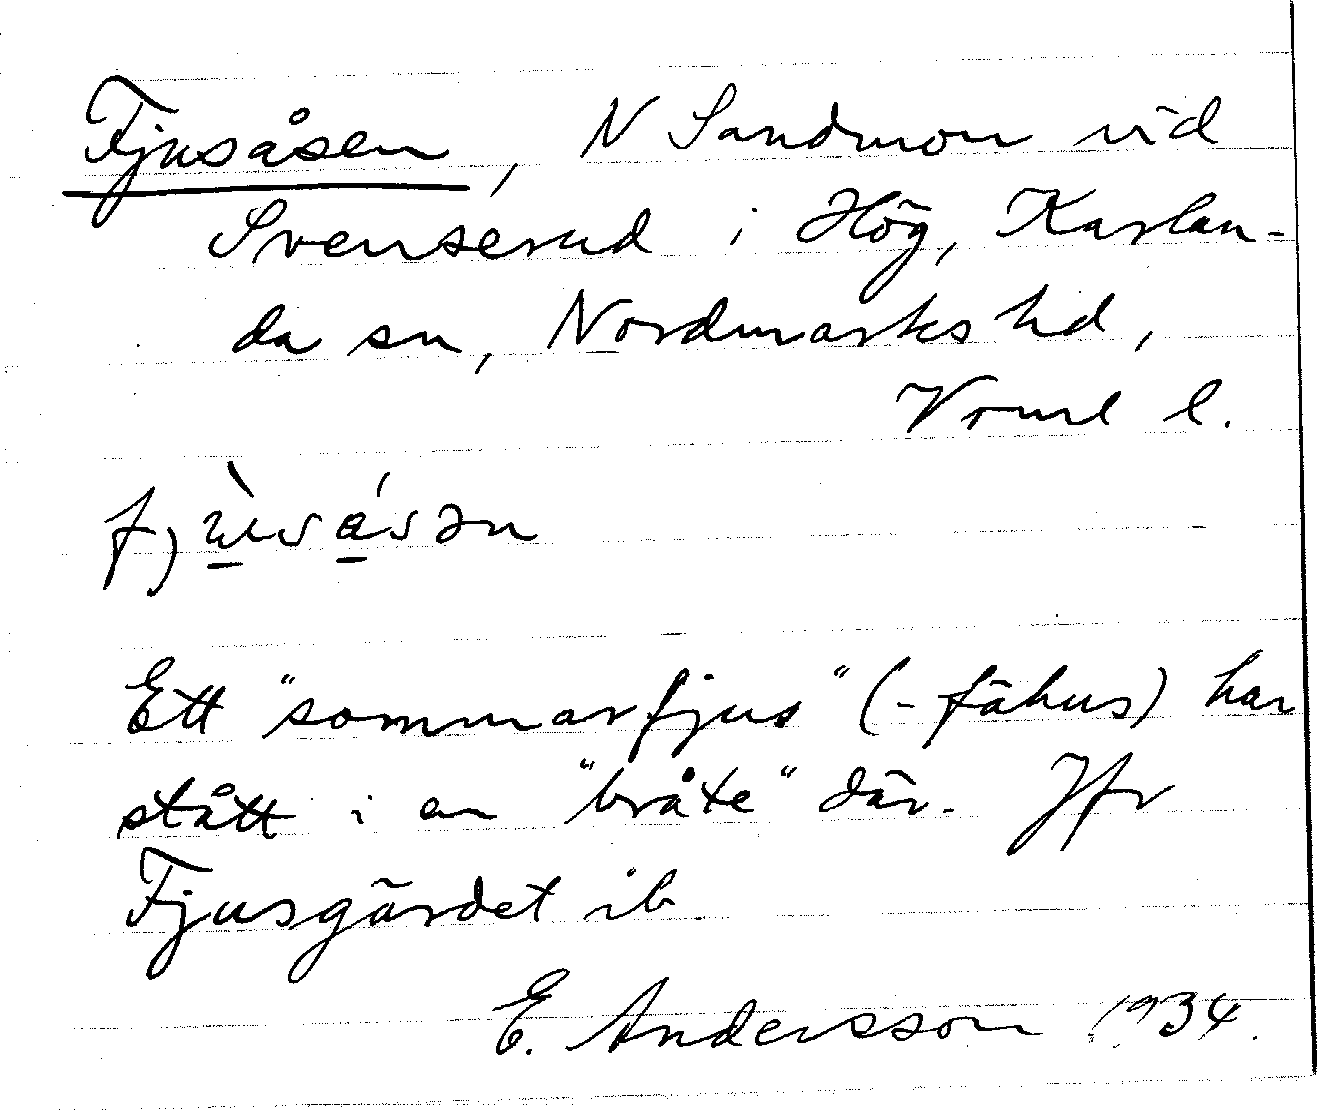 Fjusåsen, N Sandmon vid
Svenserud i Hög, Karlan-
da sn, Nordmarks hd,
Vrml l.
Ett "sommarfjus" (-fähus) har
stått i en "bråte" där. Jfr
Fjusgärdet ib.
E. Andersson 1934.